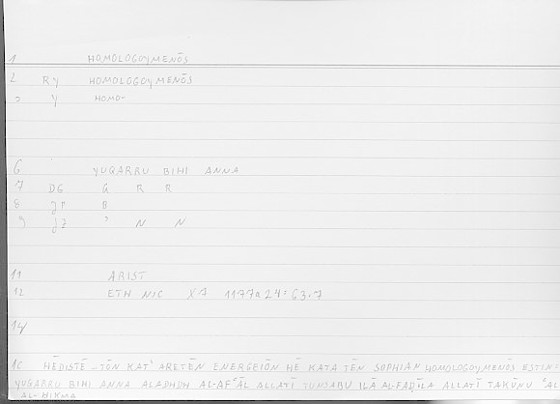 1 HOMOLOGOYMENŌS
2 RY HOMOLOGOYMENŌS
3 Y HOMO-
6 YUQARRU BIHI ANNA
7 DG G R R
8 JP B
9 JZ ' N N
11 ARIST
12 ETH NIC X7 1177A24=63.7
14/
16 HĒDISTĒ -TŌN KAT' ARETĒN ENERGEIŌN HĒ KATA TĒN SOPHIAN HOMOLOGOYMENŌS ESTIN:
YUQARRU BIHI ANNA ALADHDH AL-AFʿĀL ALLATĪ TUNSABU ILĀ AL-FAḌĪLA ALLATĪ TAKŪNU
AL-ḤIKMA